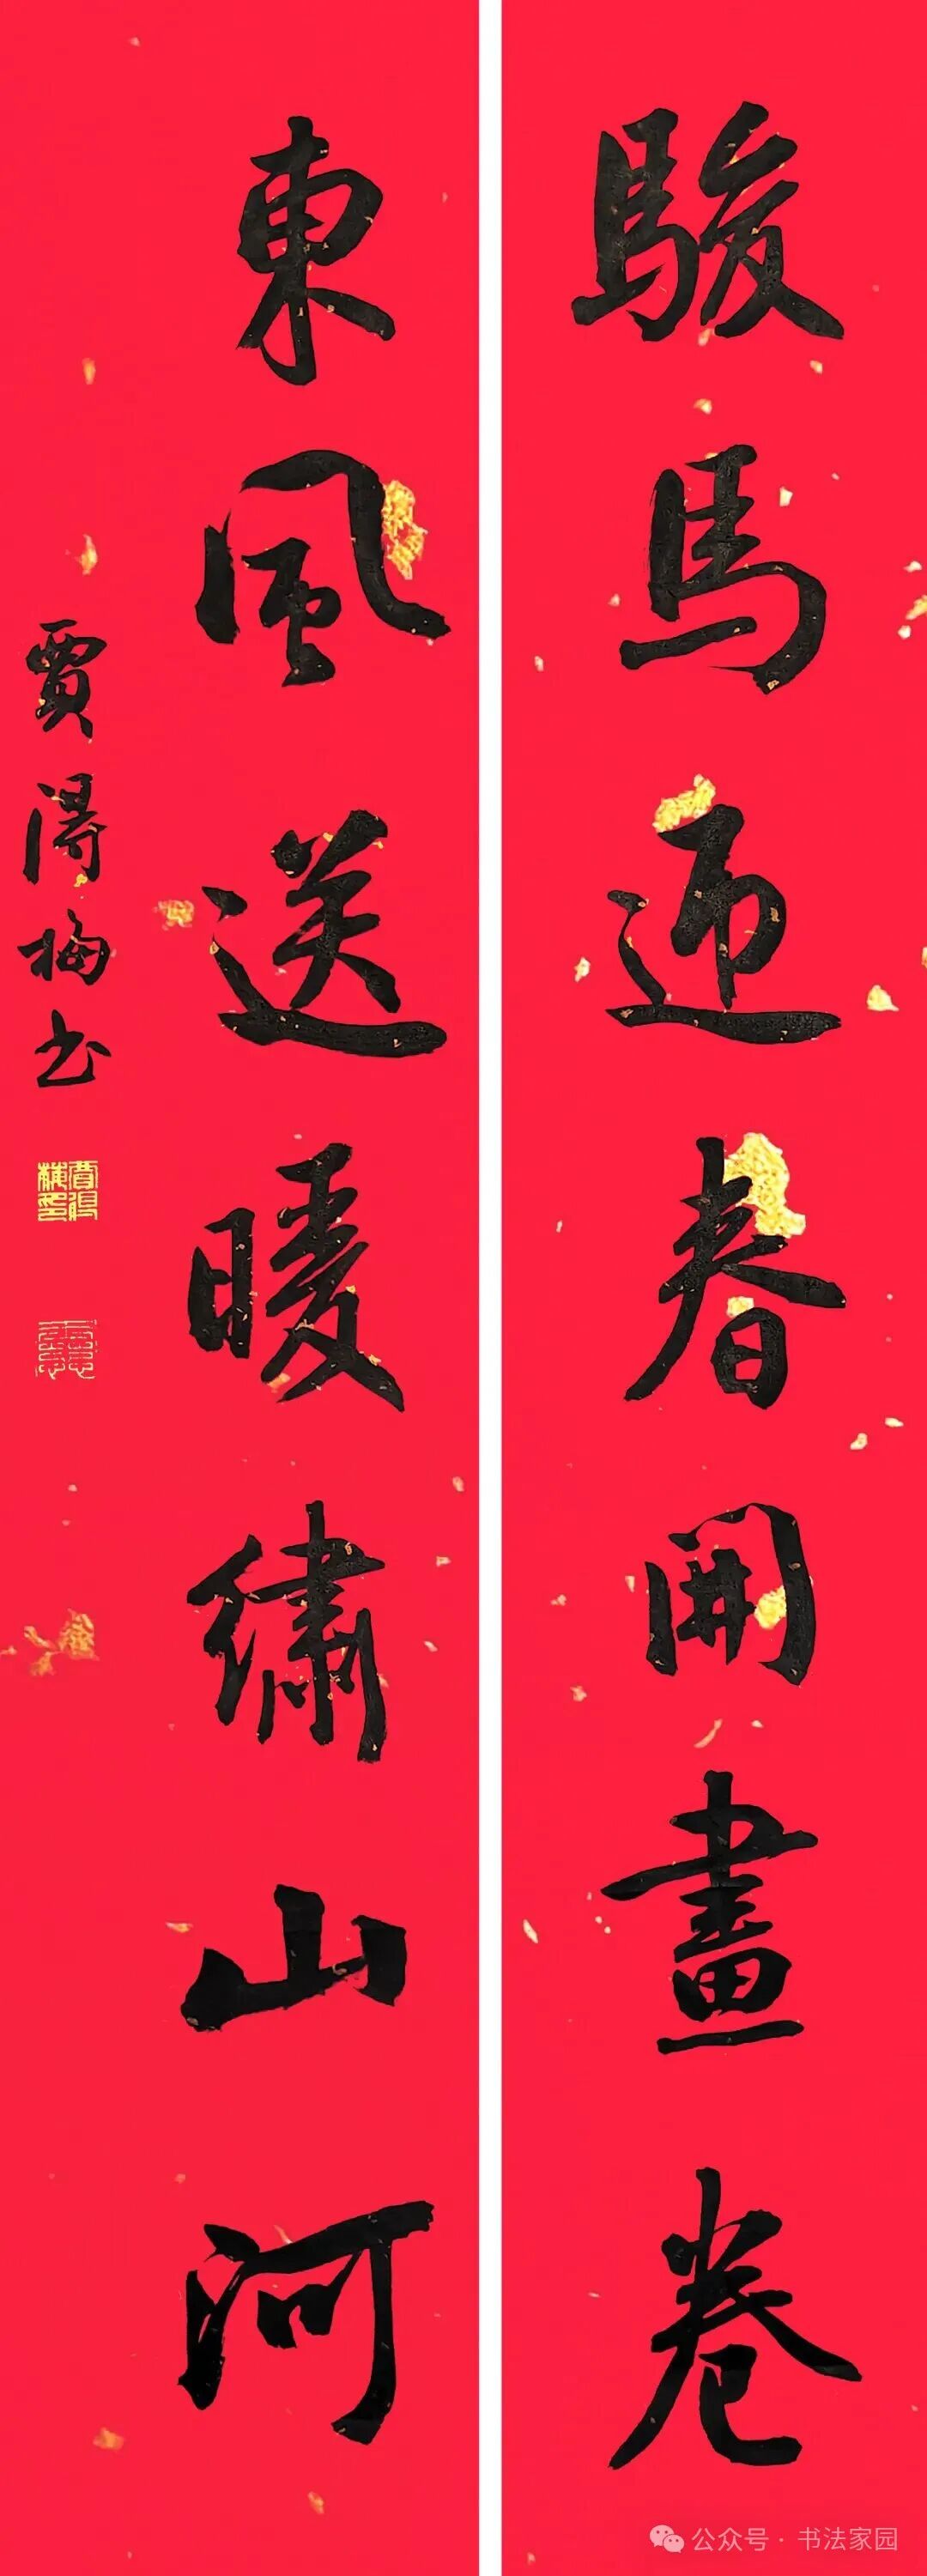 駿馬迎春開畫卷
東風送暖繡山河
賈得梅书
公众号 · 书法家园